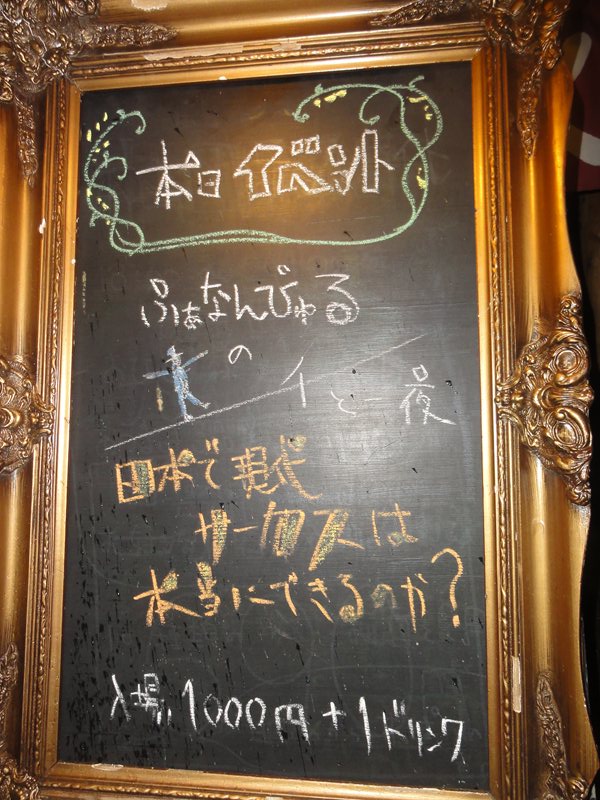 本日イベント
ふぁなんびゅる
の イと一夜
日本で現代
サーカスは
本当にできるのか?
入場 1000円+1ドリンク